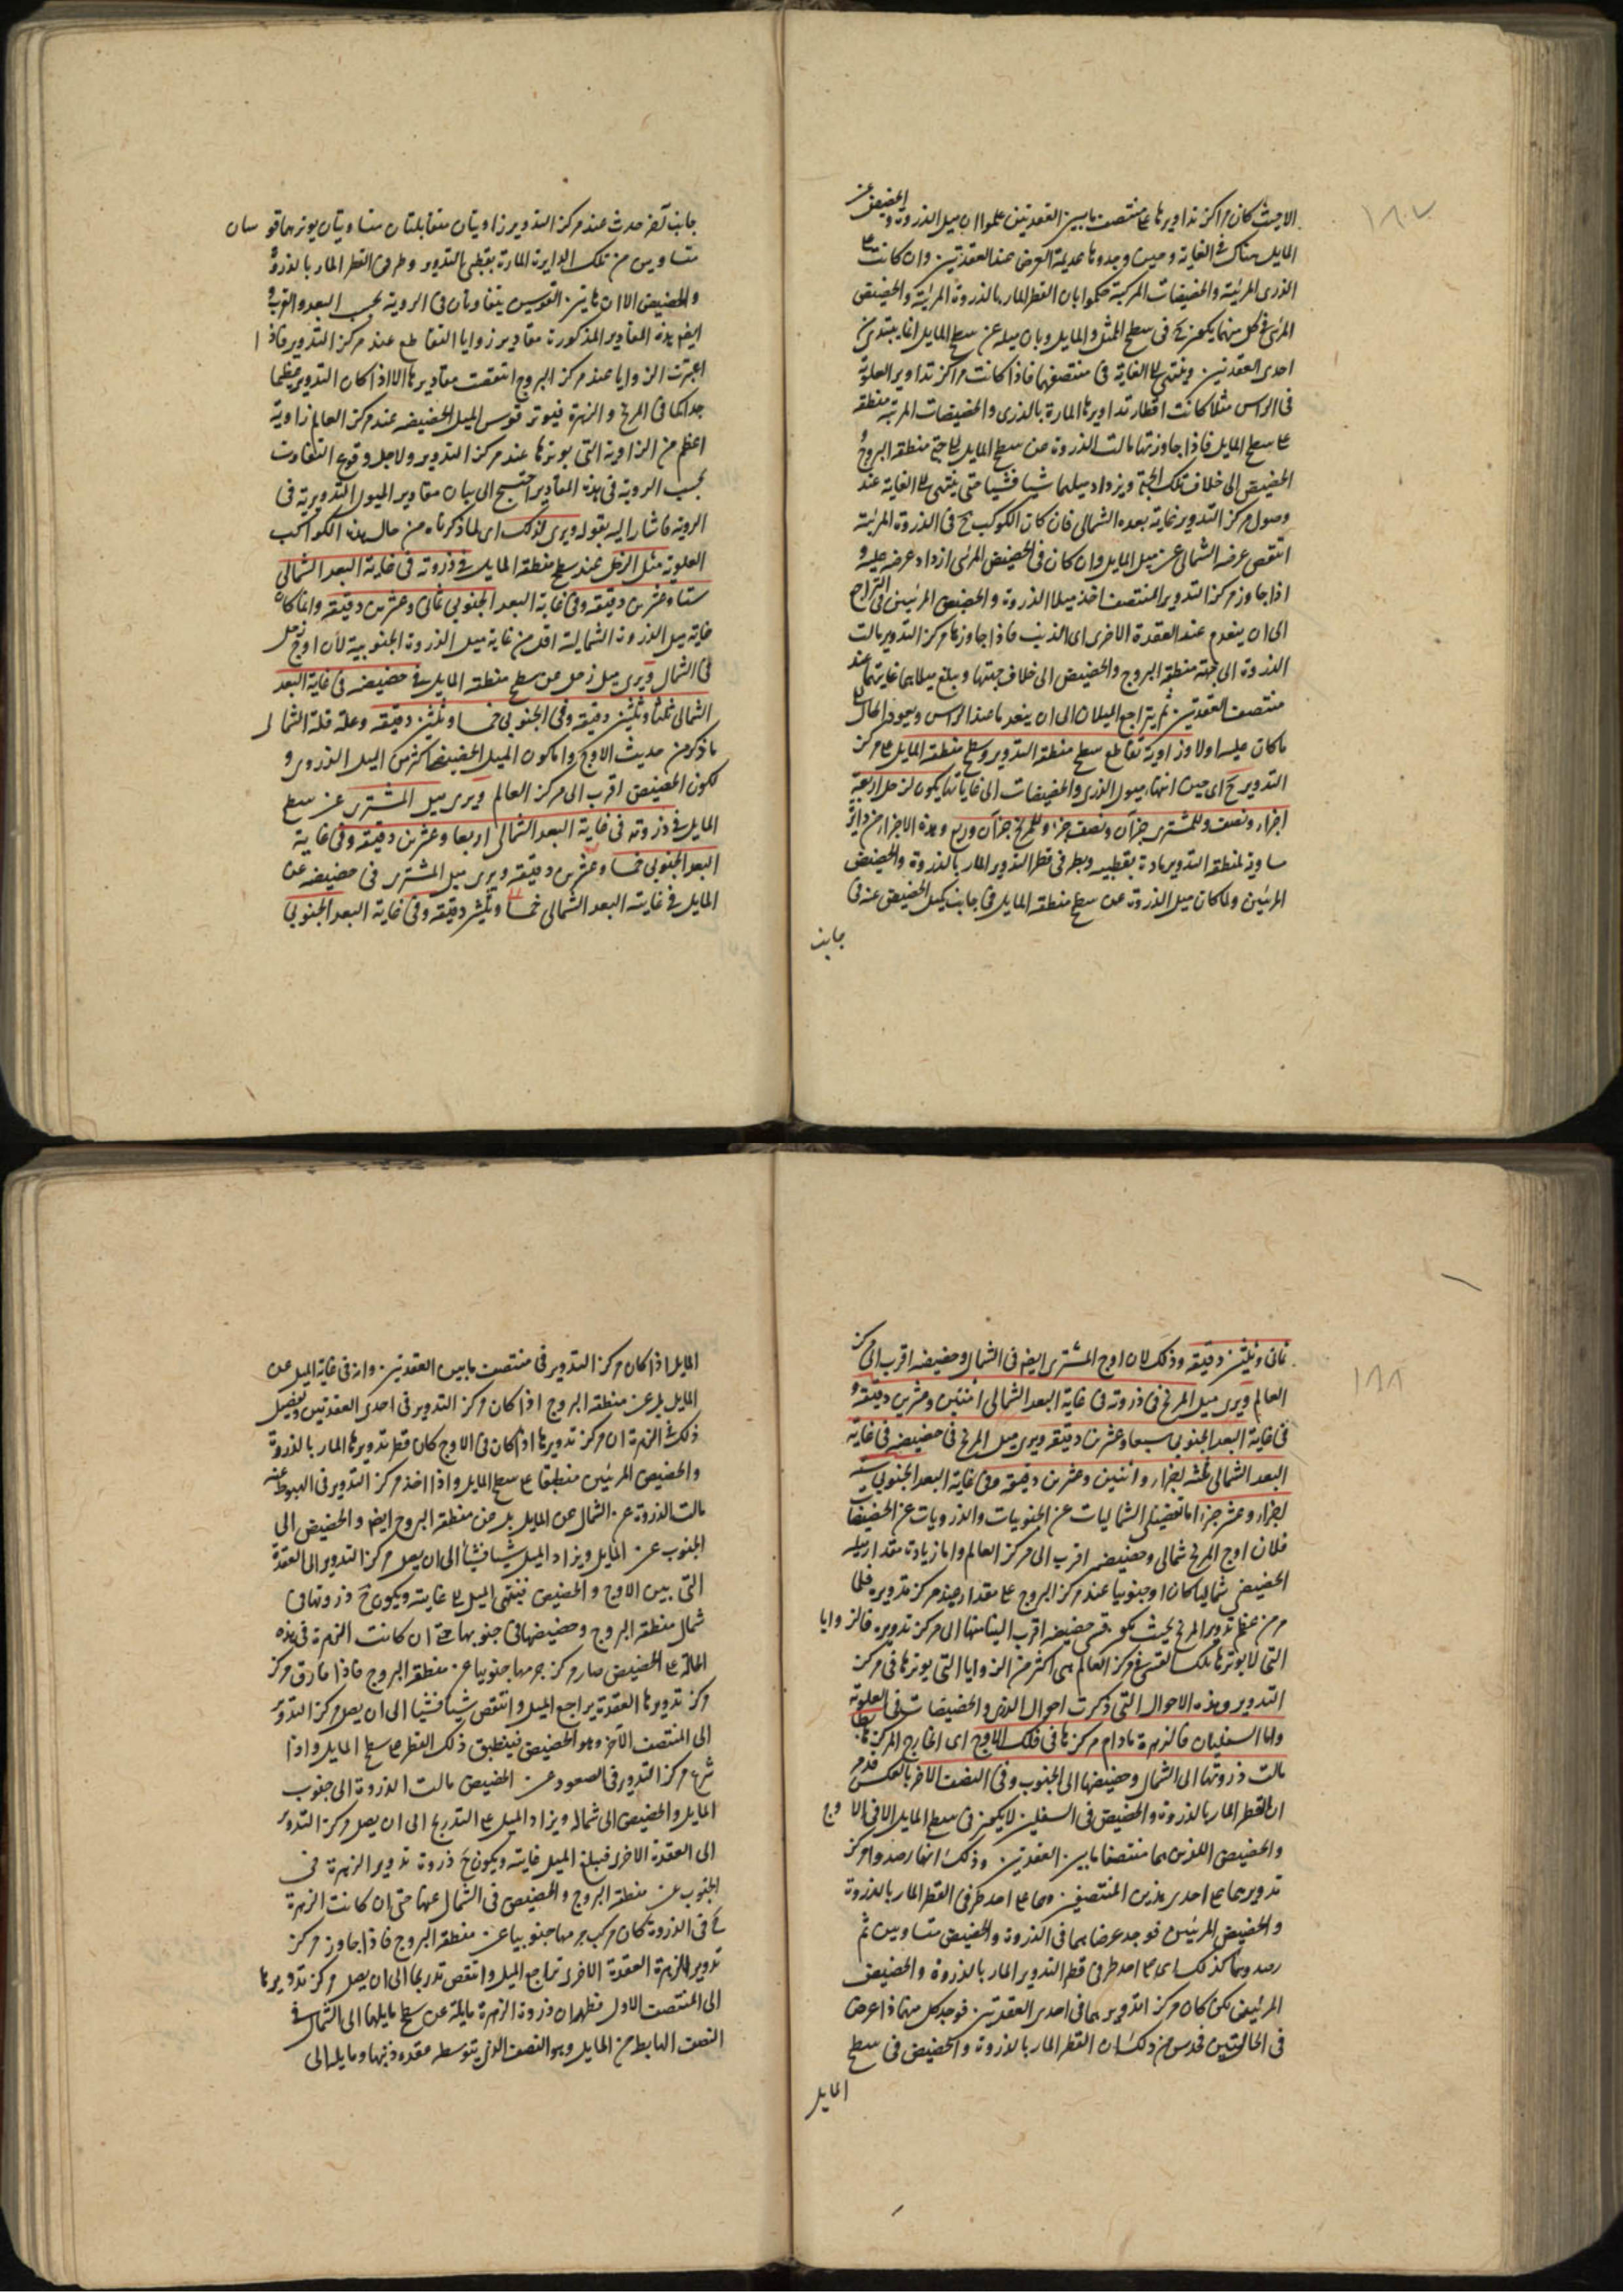 ١٨٧
الا حيث كان مراكز تداويرها على منتصف ما بين العقدتين علموا ان ميل الذروة والحضيض عن
المايل هناك في الغاية وحيث وجدوها عديمة العرض عند العقدتين وان كانت على
الذرى المرئية والحضيضات المركبة حكموا بان القطر المار بالذروة المرئية والحضيض
المرئي في كل منهما يكون ح في سطح الممثل والمايل وبان ميله عن سطح المايل انما يبتدئ من
احدى العقدتين وينتهي الى الغاية في منتصفهما فاذا كانت مراكز تداوير العلوية
في الراس مثلا كانت اقطار تداويرها المارة بالذرى والحضيضات المرئية منطبقة
على سطح المايل فاذا جاوزتها مالت الذروة عن سطح المايل الى جهة منطقة البروج و
الحضيض الى خلاف تلك الجهة ويزداد ميلهما شيا فشيا حتى ينتهى الى الغاية عند
وصول مركز التدوير غاية بعده الشمالى فان كان الكوكب ح في الذروة المرئية
انتقص عرضه الشمالى عن ميل المايل وان كان في الحضيض المرئى ازداد عرضه عليه و
اذا جاوز مركز التدوير المنتصف اخذ ميلا الذروة والحضيض المرئيين في التراجع
الى ان ينعدم عند العقدة الاخرى اى الذنب فاذا جاوزها مركز التدوير مالت
الذروة الى جهة منطقة البروج والحضيض الى خلاف جهتها ويبلغ ميلاهما غايتهما عند
منتصف العقدتين ثم يتراجع الميلان الى ان ينعدما عند الراس ويعود الحال الى
ما كان عليه اولا وزاوية تقاطع سطح منطقة التدوير وسطح منطقة المايل على مركز
التدوير ح اى حين انتهاء ميول الذرى والحضيضات الى غاياتها يكون لزحل اربعة
اجزاء ونصف وللمشترى جزآن ونصف جزء وللمريخ جزآن وربع وهذه الاجزاء من دايرة
مساوية لمنطقة التدوير مارة بقطبيه وبطرفى قطر التدوير المار بالذروة والحضيض
المرئيين ولما كان ميل الذروة عن سطح منطقة المايل في جانب كميل الحضيض عنه في
جانب
جانب آخر حدث عند مركز التدوير زاويتان متقابلتان متساويتان يوترهما قوسان
متساويين من تلك الدايرة المارة بقطبى التدوير وطرفى القطر المار بالذروة
والحضيض الا ان هاتين القوسين يتفاوتان في الروية بحسب البعد والقرب و
ايضا هذه المقادير المذكورة مقادير زوايا التقاطع عند مركز التدوير فاذا
اعتبرت الزوايا عند مركز البروج انتقصت مقاديرها الا اذا كان التدوير عظيما
جدا كما في المريخ والزهرة فيوتر قوس الميل الحضيضه عند مركز العالم زاوية
اعظم من الزاوية التى يوترها عند مركز التدوير ولاجل وقوع التفاوت
بحسب الروية في هذه المقادير احتيج الى بيان مقادير الميول التدويرية في
الروية فاشار اليه بقوله ويرى لذلك اى لما ذكرناه من حال هذه الكواكب
العلوية مثل الزحل عند سطح منطقة المايل في ذروته في غاية البعد الشمالى
ستا وعشرين دقيقة وفي غاية البعد الجنوبى ثمانى وعشرين دقيقة وانما كان
غاية ميل الذروة الشمالية اقل من غاية ميل الذروة الجنوبية لان اوج زحل
في الشمال ويرى ميل زحل عن سطح منطقة المايل في حضيضه في غاية البعد
الشمالى ثلثا وثلثين دقيقة وفي الجنوبى خمسا وثلثين دقيقة وعلة قلة الشمالى
ما ذكر من حديث الاوج واما كون الميل الحضيضى اكثر من الميل الذروى و
لكون الحضيض اقرب الى مركز العالم ويرى ميل المشترى عن سطح
المايل في ذروته في غاية البعد الشمالى اربعا وعشرين دقيقة وفي غاية
البعد الجنوبى خمسا وعشرين دقيقة ويرى ميل المشترى في حضيضه عن
المايل في غاية البعد الشمالى خمسا وثلثين دقيقة وفي غاية البعد الجنوبى
١٨٨
ثمانى وثلثين دقيقة وذلك لان اوج المشترى ايضا في الشمال وحضيضه اقرب الى مركز
العالم ويرى ميل المريخ في ذروته في غاية البعد الشمالى اثنتين وعشرين دقيقة و
في غاية البعد الجنوبى سبعا وعشرين دقيقة ويرى ميل المريخ في حضيضه في غاية
البعد الشمالى ثلثة اجزاء واثنين وعشرين دقيقة وفي غاية البعد الجنوبى ستة
اجزاء وعشر جزء اما تفضيل الشماليات عن الجنوبيات والذرويات عن الحضيضات
فلان اوج المريخ شمالى وحضيضه اقرب الى مركز العالم واما زيادة مقدار ميله
الحضيضى شماليا كان او جنوبيا عند مركز البروج على مقداره عند مركز تدويره فلما
مر من عظم تدوير المريخ بحيث يكون قسى حضيضه اقرب الينا منها الى مركز تدويره فالزوايا
التى لا يوترها تلك القسى في مركز العالم هى اكثر من الزوايا التى يوترها في مركز
التدوير وهذه الاحوال التى ذكرت احوال الذرى والحضيضات في العلوية
واما السفليان فالزهرة ما دام مركزها في فلك الاوج اى الخارج المركز هابطا
مالت ذروتها الى الشمال وحضيضها الى الجنوب وفي النصف الاخر بالعكس قد مر
ان القطر المار بالذروة والحضيض في السفلين لا يكون في سطح المايل الا في الاوج
والحضيض اللذين هما منتصفا ما بين العقدتين وذلك انها رصدوا مركز
تدويريهما على احدى هذين المنتصفين وهما على احد طرفى القطر المار بالذروة
والحضيض المرئيين فوجد عرضاهما في الذروة والحضيض متساويين ثم
رصدوهما كذلك اى على احد طرفى قطر التدوير المار بالذروة والحضيض
المرئيين لكن كان مركز تدويريهما في احدى العقدتين فوجد كل منهما ذا عرض
في الحالتين فحدس من ذلك ان القطر المار بالذروة والحضيض في سطح
المايل
المايل اذا كان مركز التدوير في منتصف ما بين العقدتين وانه في غاية الميل عن
المايل بل عن منطقة البروج اذا كان مركز التدوير في احدى العقدتين وتفصيل
ذلك في الزهرة ان مركز تدويرها اذا كان في الاوج كان قطر تدويرها المار بالذروة
والحضيض المرئيين منطبقا على سطح المايل واذا اخذ مركز التدوير في الهبوط عنه
مالت الذروة عن الشمال عن المايل بل عن منطقة البروج ايضا والحضيض الى
الجنوب عن المايل ويزداد الميل شيا فشيا الى ان يصل مركز التدوير الى العقدة
التى بين الاوج والحضيض فينتهى الميل الى غايته ويكون ح ذروتها في
شمال منطقة البروج وحضيضها في جنوبها حتى ان كانت الزهرة في هذه
الحالة على الحضيض صار مركز جرمها جنوبيا عن منطقة البروج فاذا فارق مركز
مركز تدويرها العقدة يراجع الميل وانتقص شيا فشيا الى ان يصل مركز التدوير
الى المنتصف الآخر وهو الحضيض فينطبق ذلك القطر على سطح المايل واذا
شرع مركز التدوير في الصعود عن الحضيض مالت الذروة الى جنوب
المايل والحضيض الى شماله ويزداد الميل على التدريج الى ان يصل مركز التدوير
الى العقدة الاخرى فيبلغ الميل غايته ويكون ح ذروة تدوير الزهرة في
الجنوب عن منطقة البروج والحضيض في الشمال عنها حتى ان كانت الزهرة
ح في الذروة كان مركب جرمها جنوبيا عن منطقة البروج فاذا جاوز مركز
تدوير الزهرة العقدة الاخرى تراجع الميل وانتقص تدريجا الى ان يصل مركز تدويرها
الى المنتصف الاول فظهر ان ذروة الزهرة مايلة عن سطح مايلها الى الشمال في
النصف الهابط من المايل وهو النصف الذى يتوسطه عقدة ذنبها ومايلة الى